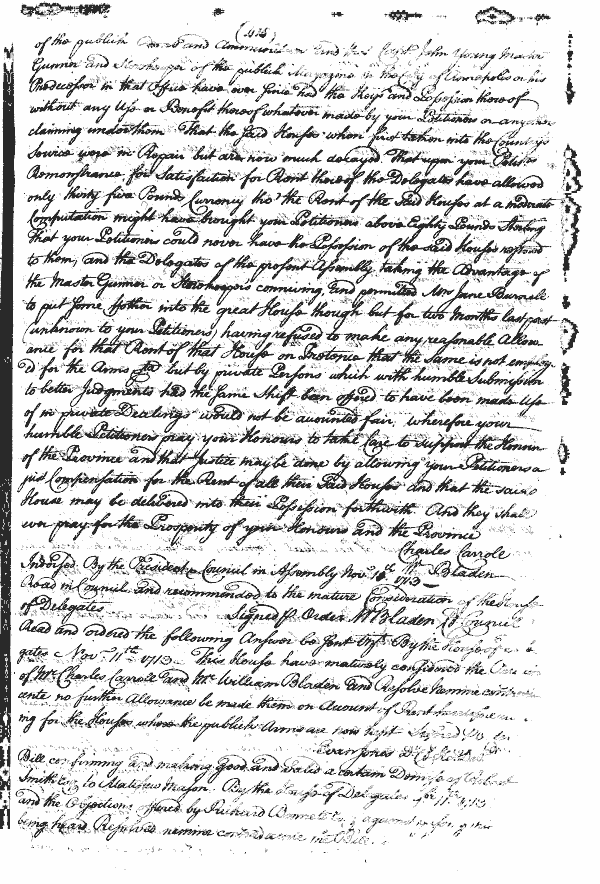 of the publick and Ammunition and that Capt John Young Master
Gunner and Storekeeper of the publick Magazine in the City of Annapolis or his
Predecessor in that Office have ever since had the Keys and Possession thereof
without any Use or Benefit thereof whatever made by your Petitioners or any other
claiming under them That the said Houses when first taken into the Countrys
Service were in Repair but are now much decayed That upon your Petitrs
Remonstrance, for Satisfaction for Rent thereof the Delegates have allowed
only thirty five Pounds Currency tho' the Rent of the said Houses at a moderate
Computation might have brought your Petitioners above Eighty Pounds Sterling
That your Petitioners could never have the Possession of the said Houses restored
to them, and the Delegates of the present Assembly taking the Advantage of
the Master Gunner or Storekeepers conniving and permitted Mrs Jane Burnell
to put some other into the great House though but for two Months last past
(unknown to your Petitioners) having refused to make any reasonable Allow
ance for that Rent of that House on Pretence that the same is not employ
'd for the Arms &ca but by private Persons which with humble Submission
to better Judgments had the same Shift been offered to have been made Use
of in private Dealings would not be accounted fair, wherefore your
humble Petitioners pray your Honours to take Care to support the Honour
of the Province and that Justice may be done by allowing your Petitioners a
just Compensation for the Rent of all their said Houses and that the said
House may be delivered into their Possession forthwith And they shall
ever pray for the Prosperity of your Honours and the Province
Charles Carroll
Wm Bladen
Indorsed By the President & Council in Assembly Novr 10th 1713
Read in Council and recommended to the mature Consideration of the House
of Delegates Signed p Order Wm Bladen Cl Council
Read and ordered the following Answer be sent Vizt By the House of Dele
gates Novr 11th 1713 This House have maturely considered the
of Mr Charles Carroll and Mr William Bladen and Resolve Nemine contradi
cente no further Allowance be made them on Account of Rent
ng for the Houses where the publick Arms are now kept Signed p Order
Evan Jones
Bill confirming and making good and valid a certain Demise of Robert
Smith to Matthew Mason. By the House of Delegates 11th 1713
and the Objections offered by Richard Bennett against
being heard Resolved nemine contradicente